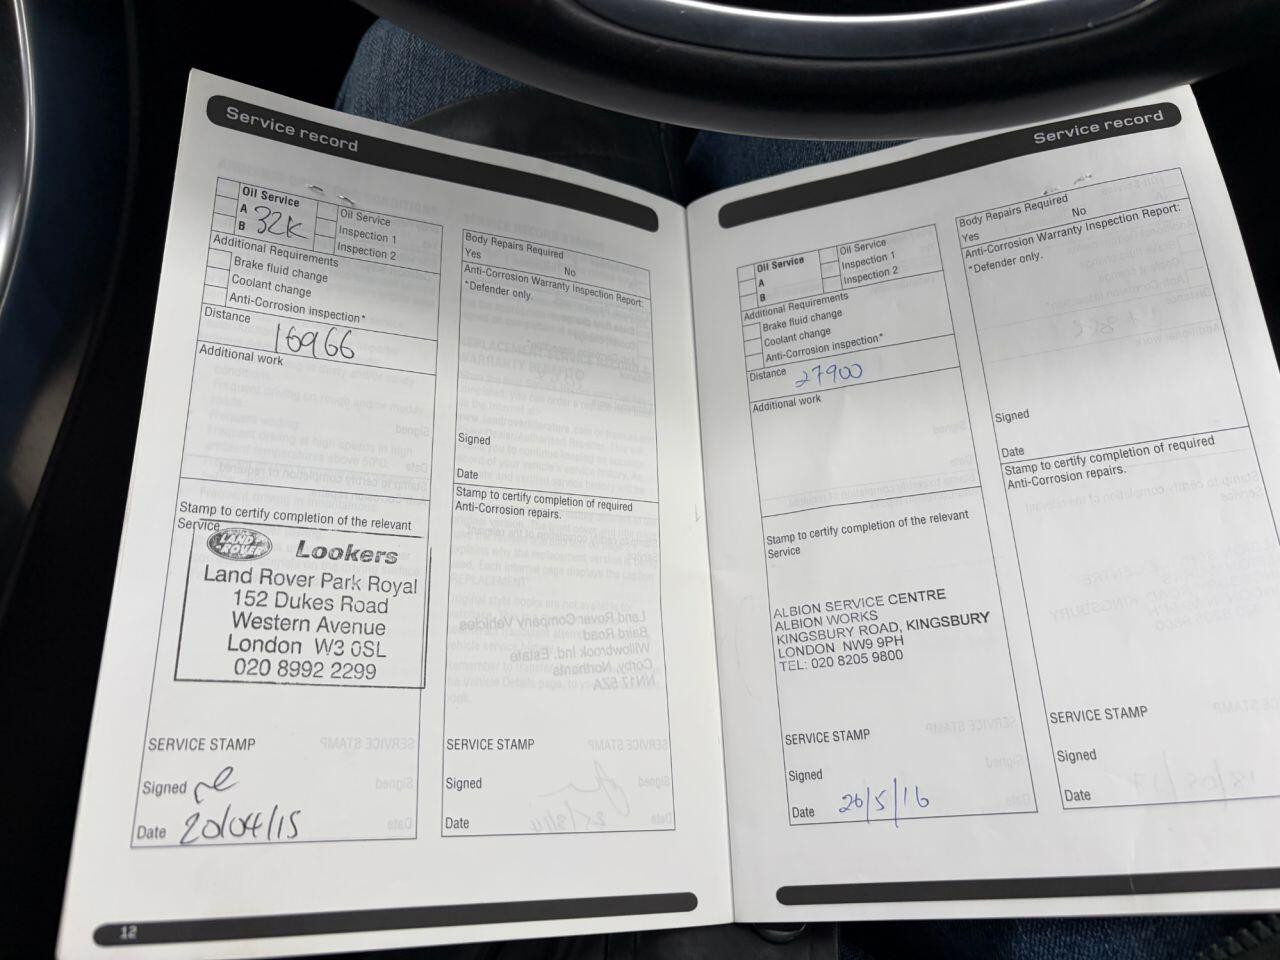 Service record
Oil Service
A
B
32k
Oil Service
Inspection 1
Inspection 2
Additional Requirements
Brake fluid change
Coolant change
Anti-Corrosion inspection*
Distance 16966
Additional work
Stamp to certify completion of the relevant
Service
LAND-ROVER
Lookers
Land Rover Park Royal
152 Dukes Road
Western Avenue
London W3 0SL
020 8992 2299
SERVICE STAMP
Signed
Date 20/04/15
12
Body Repairs Required
Yes No
Anti-Corrosion Warranty Inspection Report:
*Defender only.
Signed
Date
Stamp to certify completion of required
Anti-Corrosion repairs.
SERVICE STAMP
Signed
Date
Service record
Oil Service
A
B
Oil Service
Inspection 1
Inspection 2
Additional Requirements
Brake fluid change
Coolant change
Anti-Corrosion inspection*
Distance 27900
Additional work
Stamp to certify completion of the relevant
Service
ALBION SERVICE CENTRE
ALBION WORKS
KINGSBURY ROAD, KINGSBURY
LONDON NW9 9PH
TEL: 020 8205 9800
SERVICE STAMP
Signed
Date 26/5/16
Body Repairs Required
Yes No
Anti-Corrosion Warranty Inspection Report:
*Defender only.
Signed
Date
Stamp to certify completion of required
Anti-Corrosion repairs.
SERVICE STAMP
Signed
Date